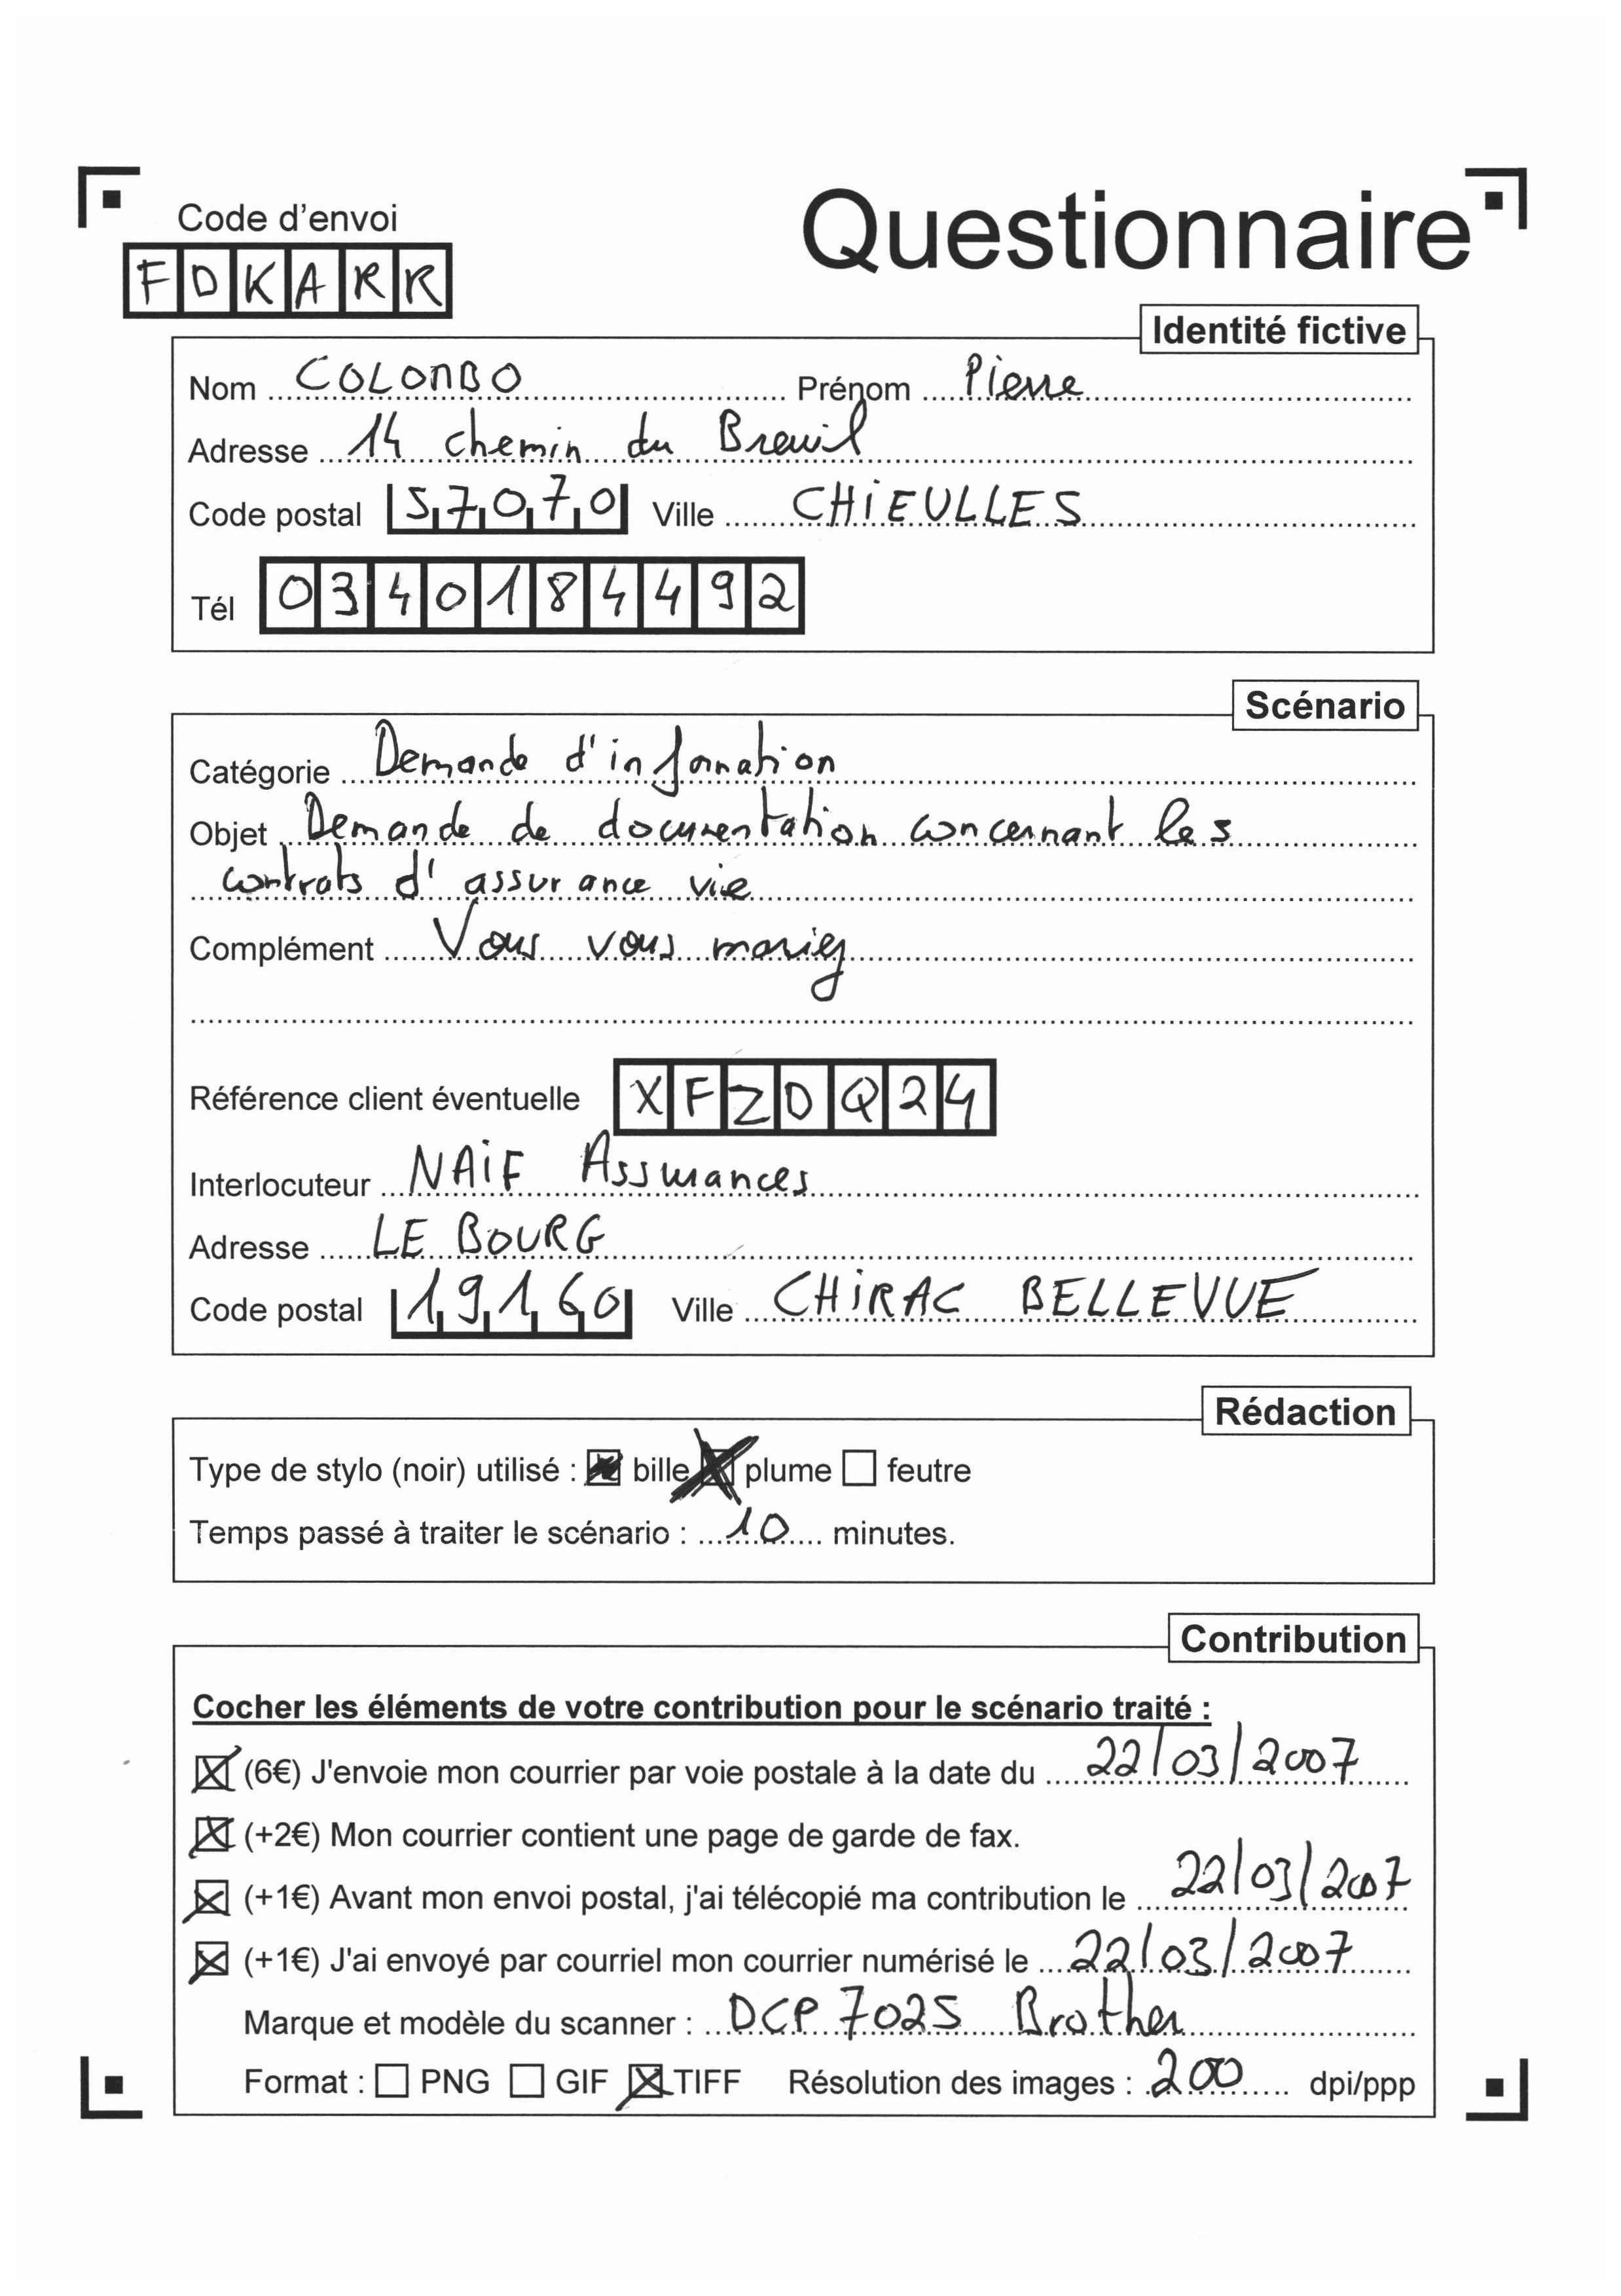 Code d'envoi
Questionnaire
FDKARR
Identité fictive
Nom COLOMBO Prénom Pierre
Adresse 14 chemin du Breuil
Code postal 57070 Ville CHiEULLES
Tél 0340184492
Scénario
Catégorie Demande d'information
Objet Demande de documentation concernant les
contrats d'assurance vie
Complément Vous vous mariez
Référence client éventuelle XFZDQ24
Interlocuteur NAiF Assurances
Adresse LE BOURG
Code postal 19160 Ville CHiRAC BELLEVUE
Rédaction
Type de stylo (noir) utilisé : bille plume feutre
Temps passé à traiter le scénario : 10 minutes.
Contribution
Cocher les éléments de votre contribution pour le scénario traité :
(6€) J'envoie mon courrier par voie postale à la date du 22/03/2007
(+2€) Mon courrier contient une page de garde de fax.
(+1€) Avant mon envoi postal, j'ai télécopié ma contribution le 22/03/2007
(+1€) J'ai envoyé par courriel mon courrier numérisé le 22/03/2007
Marque et modèle du scanner : DCP 7025 Brother
Format : PNG GIF TIFF Résolution des images : 200 dpi/ppp